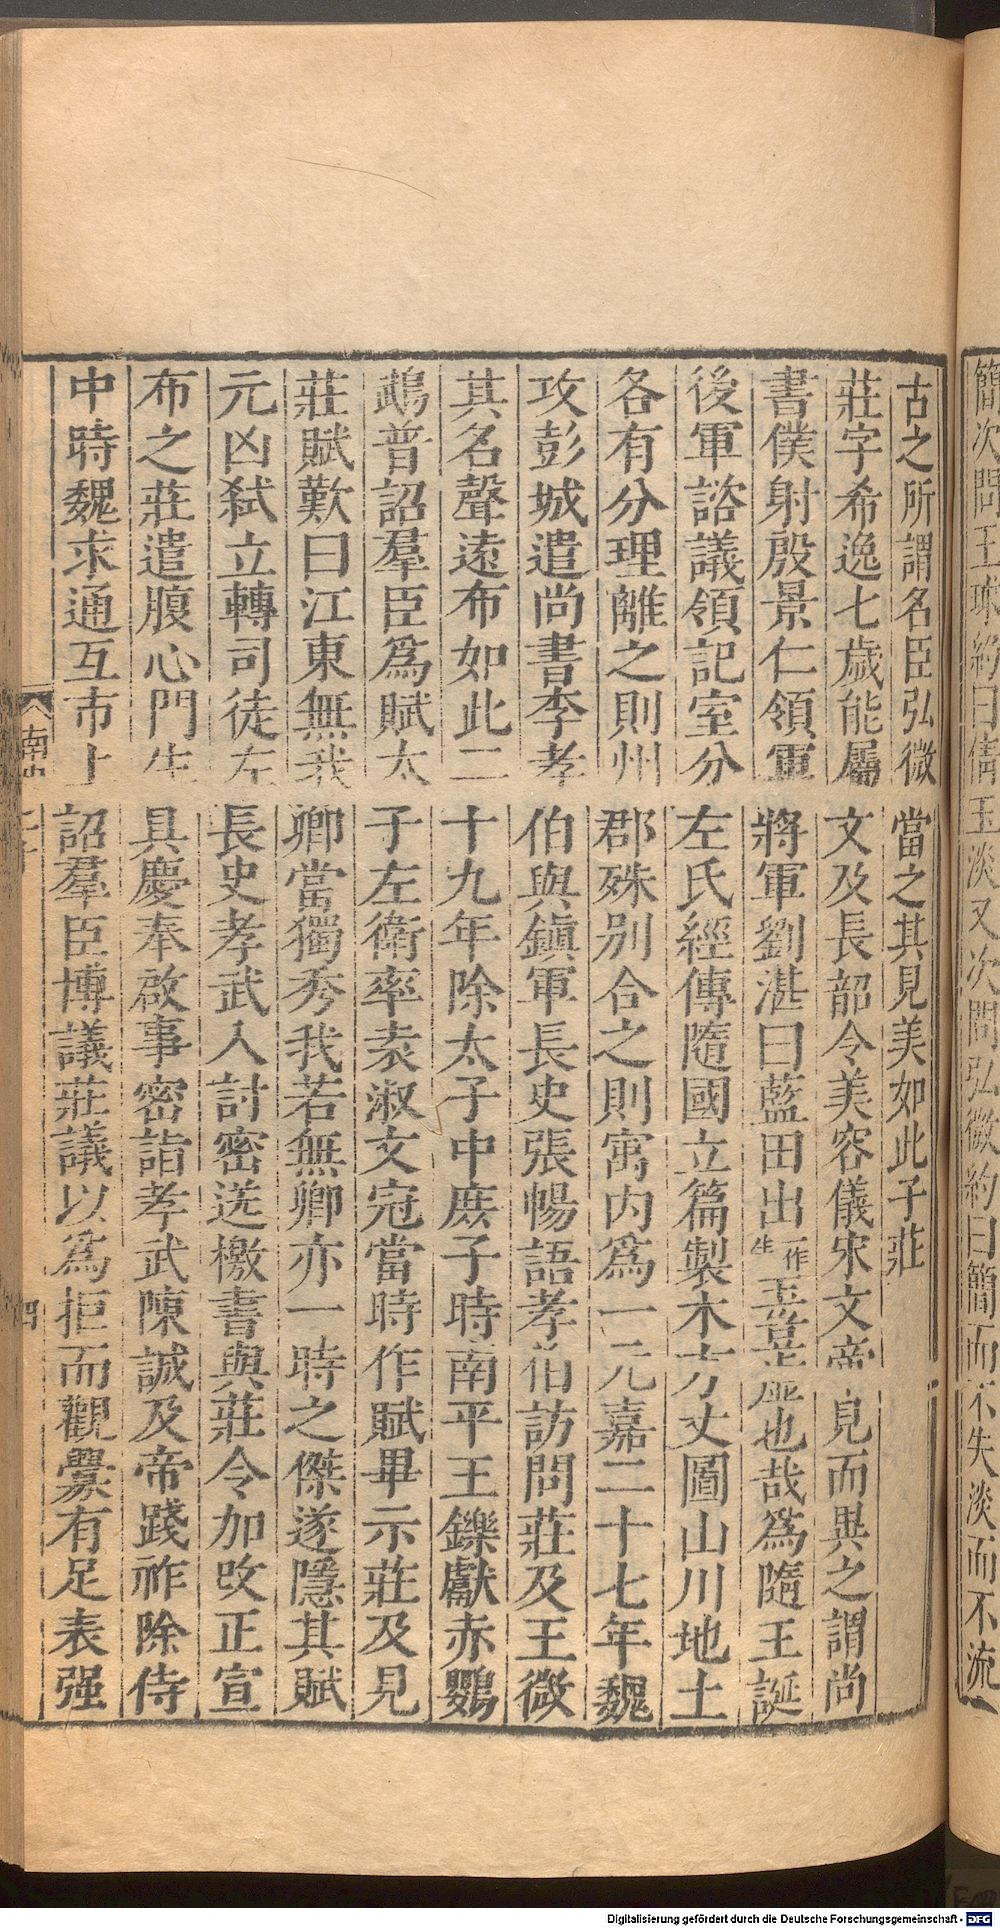 簡次問王球約曰倩玉淡又次問弘微約曰簡而不失淡而不流
古之所謂名臣弘微當之其見美如此子莊
莊字希逸七歲能屬文及長韶令美容儀宋文帝見而異之謂尚
書僕射殷景仁領軍將軍劉湛曰藍田出一作生玉豈虛也哉爲隨王誕
後軍諮議領記室分左氏經傳隨國立篇製木方丈圖山川地土
各有分理離之則州郡殊別合之則寓內爲一元嘉二十七年魏
攻彭城遣尚書李孝伯與鎮軍長史張暢語孝伯訪問莊及王微
其名聲遠布如此二十九年除太子中庶子時南平王鑠獻赤鸚
鵡普詔羣臣爲賦太子左衛率袁淑文冠當時作賦畢示莊及見
莊賦歎曰江東無我卿當獨秀我若無卿亦一時之傑遂隱其賦
元凶弑立轉司徒左長史孝武入討密送檄書與莊令加改正宣
布之莊遣腹心門生具慶奉啟事密詣孝武陳誠及帝踐祚除侍
中時魏求通互市上詔羣臣博議莊議以爲拒而觀釁有足表强
南史
四
Digitalisierung gefördert durch die Deutsche Forschungsgemeinschaft - DFG